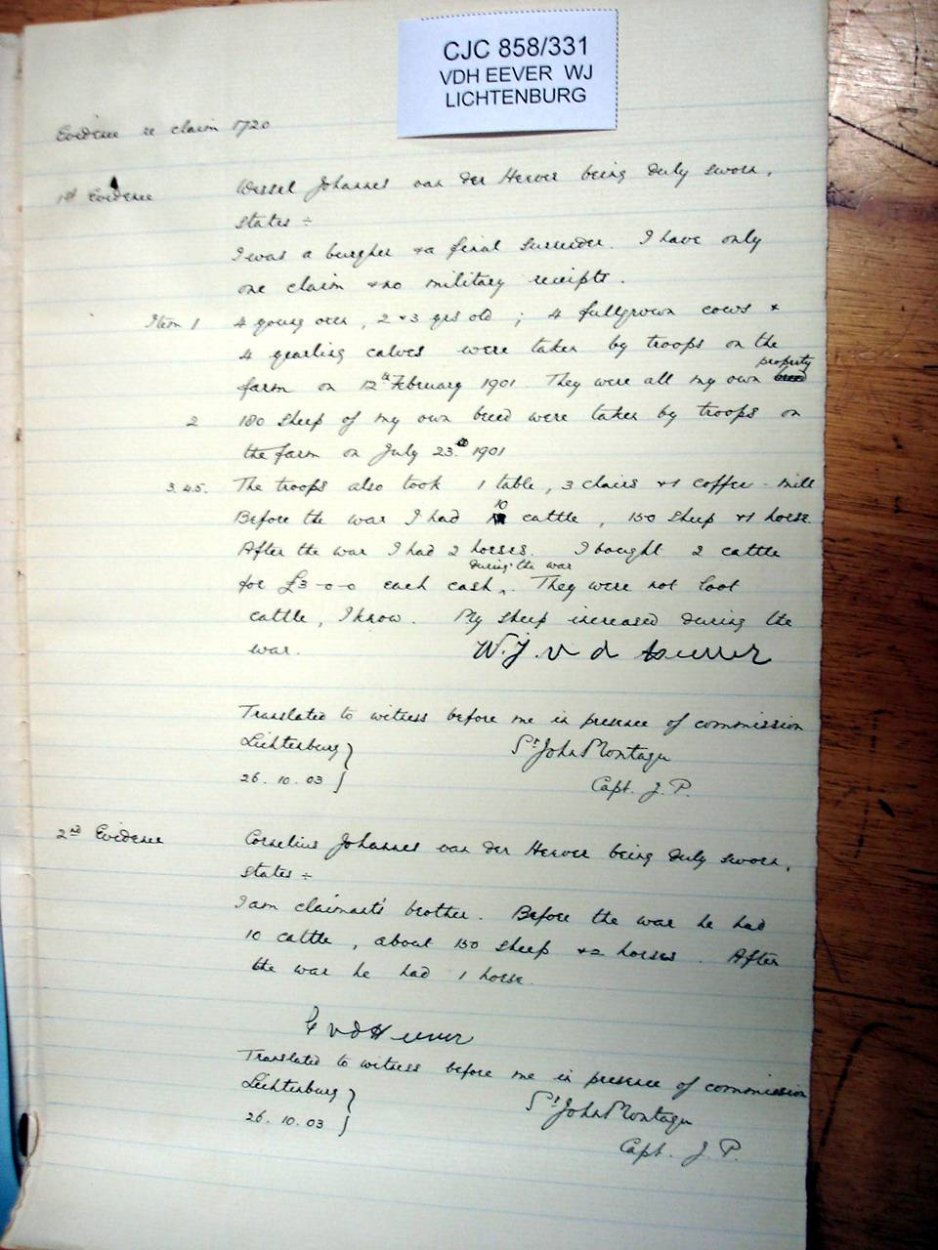 CJC 858/331
VDH EEVER WJ
LICHTENBURG
Evidence re claim 1720
1st Evidence Wessel Johannes van der Heever being duly sworn,
states ÷
I was a burgher & a final surrender. I have only
one claim & no military receipts.
Item 1 4 young oxen, 2 & 3 yrs old ; 4 fullgrown cows &
4 yearling calves were taken by troops on the
property
farm on 12th February 1901 They were all my own breed
2 180 sheep of my own breed were taken by troops on
the farm on July 23rd 1901
3.4.5. The troops also took 1 table, 3 chairs & 1 coffee-mill
10
Before the war I had cattle, 150 sheep & 1 horse.
After the war I had 2 horses. I bought 2 cattle
during the war
for £3-0-0 each cash. They were not loot
cattle, I know. My sheep increased during the
war. W. J. v d Heever
Translated to witness before me in presence of commission
Lichtenburg } St John Montagu
26.10.03 } Capt. J.P.
2nd Evidence Cornelius Johannes van der Heever being duly sworn,
states ÷
I am claimant's brother. Before the war he had
10 cattle, about 150 sheep & 2 horses. After
the war he had 1 horse.
v d Heever
Translated to witness before me in presence of commission
Lichtenburg } St John Montagu
26.10.03 } Capt. J.P.